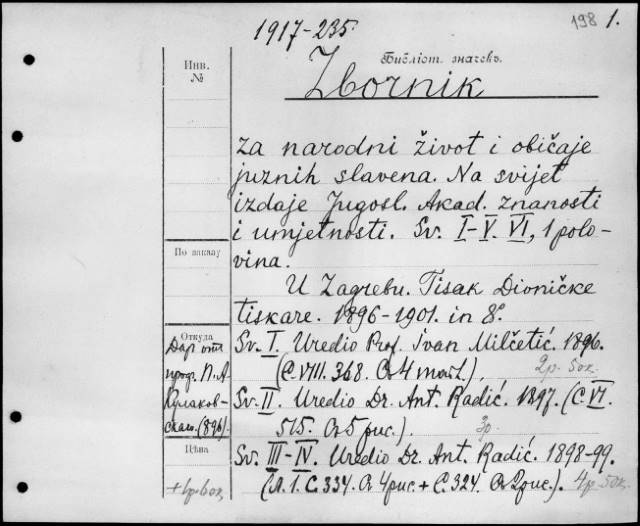 1917-235.
198 1.
Библіот. значекъ.
Инв.
№
Zbornik
za narodni život i običaje
južnih slavena. Na svijet
izdaje Jugosl. Akad. znanosti
i umjetnosti. Sv. I-V. VI, 1 polo-
vina.
По шкапу
U Zagrebu. Tisak Dioničke
tiskare. 1896-1901. in 8º.
Откуда
Даръ отъ
проф. П. А.
Кулаков-
скаго. (896).
Sv. I. Uredio Prof. Ivan Milčetić. 1896.
(C. VIII. 368. Съ 4 табл.).
2р. 50к.
Sv. II. Uredio Dr. Ant. Radić. 1897. (C. VI.
515. Съ 5 рис.).
3р.
Цѣна
Sv. III-IV. Uredio Dr. Ant. Radić. 1898-99.
(Л. 1. С. 334. Съ 4 рис. + С. 324. Съ 2 рис.).
4р. 50к.